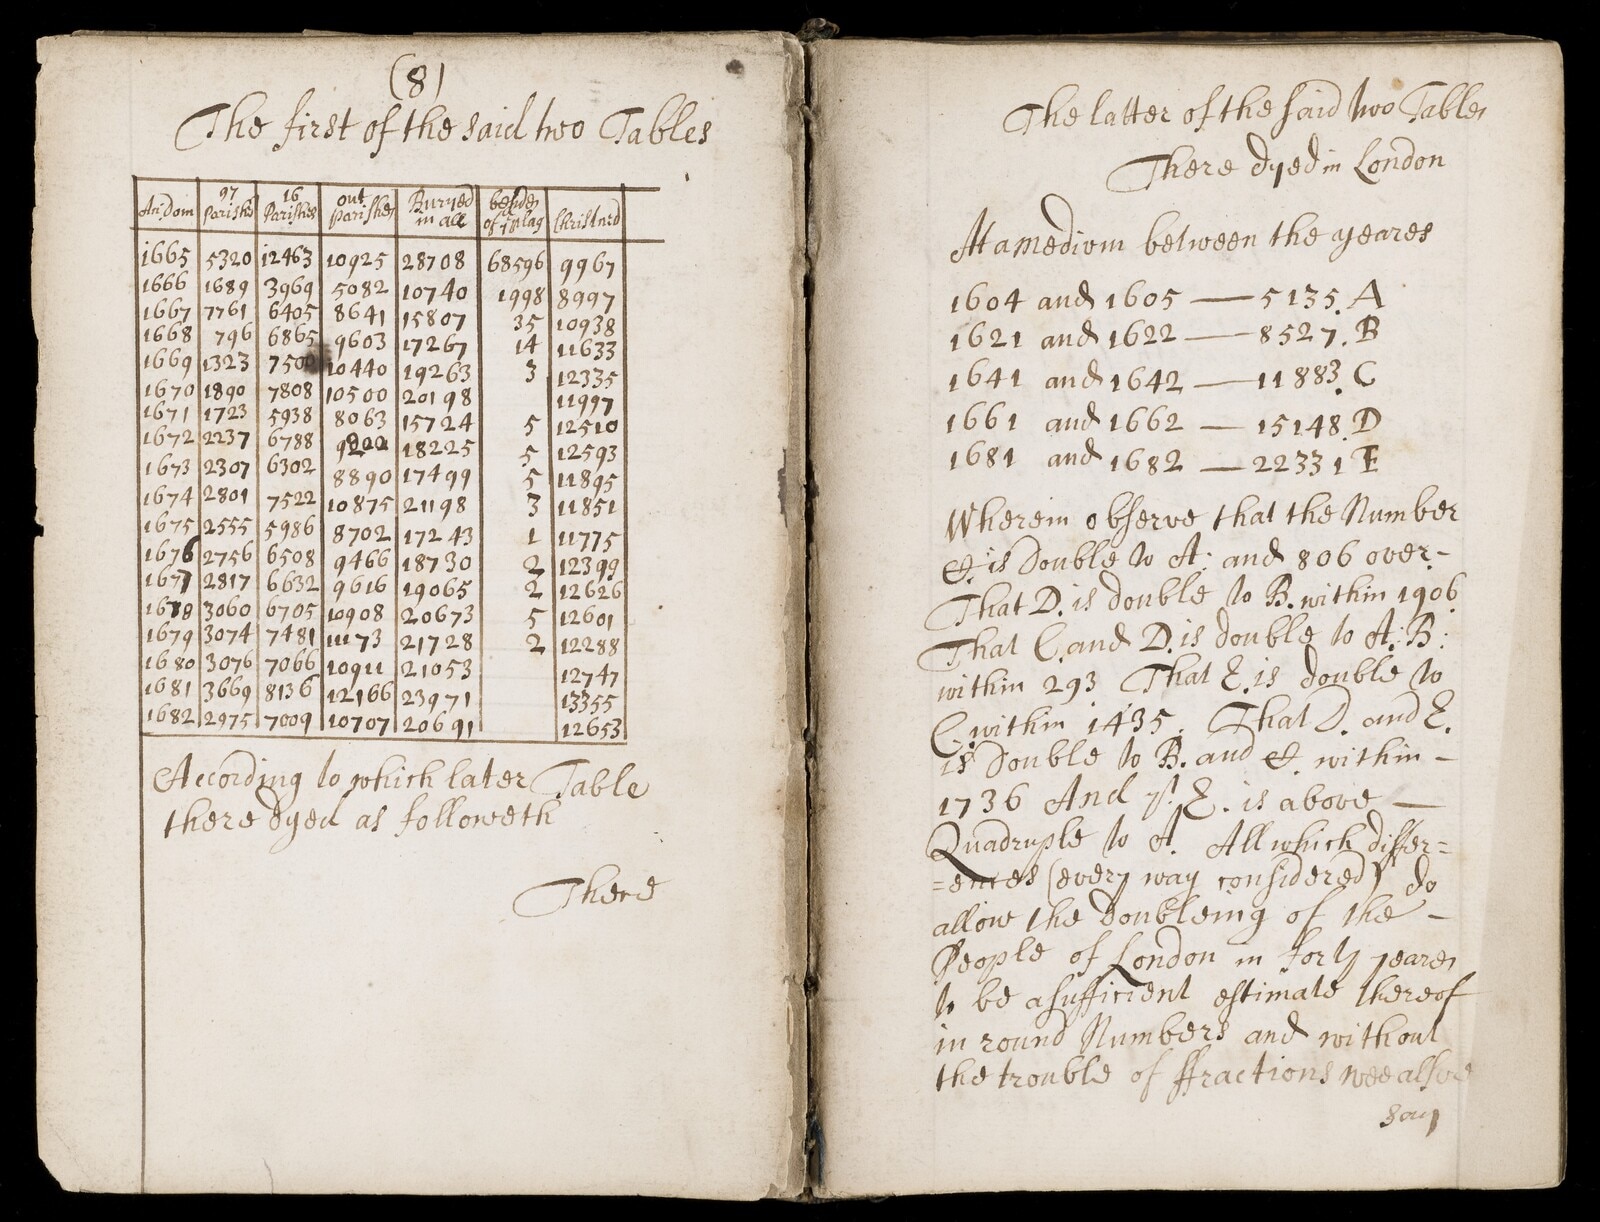 (8)
The first of the said two Tables
An: Dom 97 Parishes 16 Parishes out parishes Buryed in all besides of ye plag Christned
1665 5320 12463 10925 28708 68596 9967
1666 1689 3969 5082 10740 1998 8997
1667 7761 6405 8641 15807 35 10938
1668 796 6865 9603 17267 14 11633
1669 1323 7500 10440 19263 3 12335
1670 1890 7808 10500 20198 11997
1671 1723 5938 8063 15724 5 12510
1672 2237 6788 9200 18225 5 12593
1673 2307 6302 8890 17499 5 11895
1674 2801 7522 10875 21198 3 11851
1675 2555 5986 8702 17243 1 11775
1676 2756 6508 9466 18730 2 12399
1677 2817 6632 9616 19065 2 12626
1678 3060 6705 10908 20673 5 12601
1679 3074 7481 11173 21728 2 12288
1680 3076 7066 10911 21053 12747
1681 3669 8136 12166 23971 13355
1682 2975 7009 10707 20691 12653
According to which later Table
there dyed as followeth
There
The latter of the said two Tables
There dyed in London
At a medium between the yeares
1604 and 1605 — 5135. A
1621 and 1622 — 8527. B
1641 and 1642 — 11883. C
1661 and 1662 — 15148. D
1681 and 1682 — 22331 E
Wherein observe that the Number
C. is double to A: and 806 over-
That D. is double to B. within 1906
That C. and D. is double to A: B:
within 293 That E. is double to
C. within 1435. That D. and E.
is double to B. and C. within -
1736 And yt E. is above —
Quadruple to A. All which differ=
=ences (every way considered) do
allow the doubleing of the -
People of London in forty yeares
to be a sufficient estimate thereof
in round Numbers and without
the trouble of ffractions wee alsoe
say